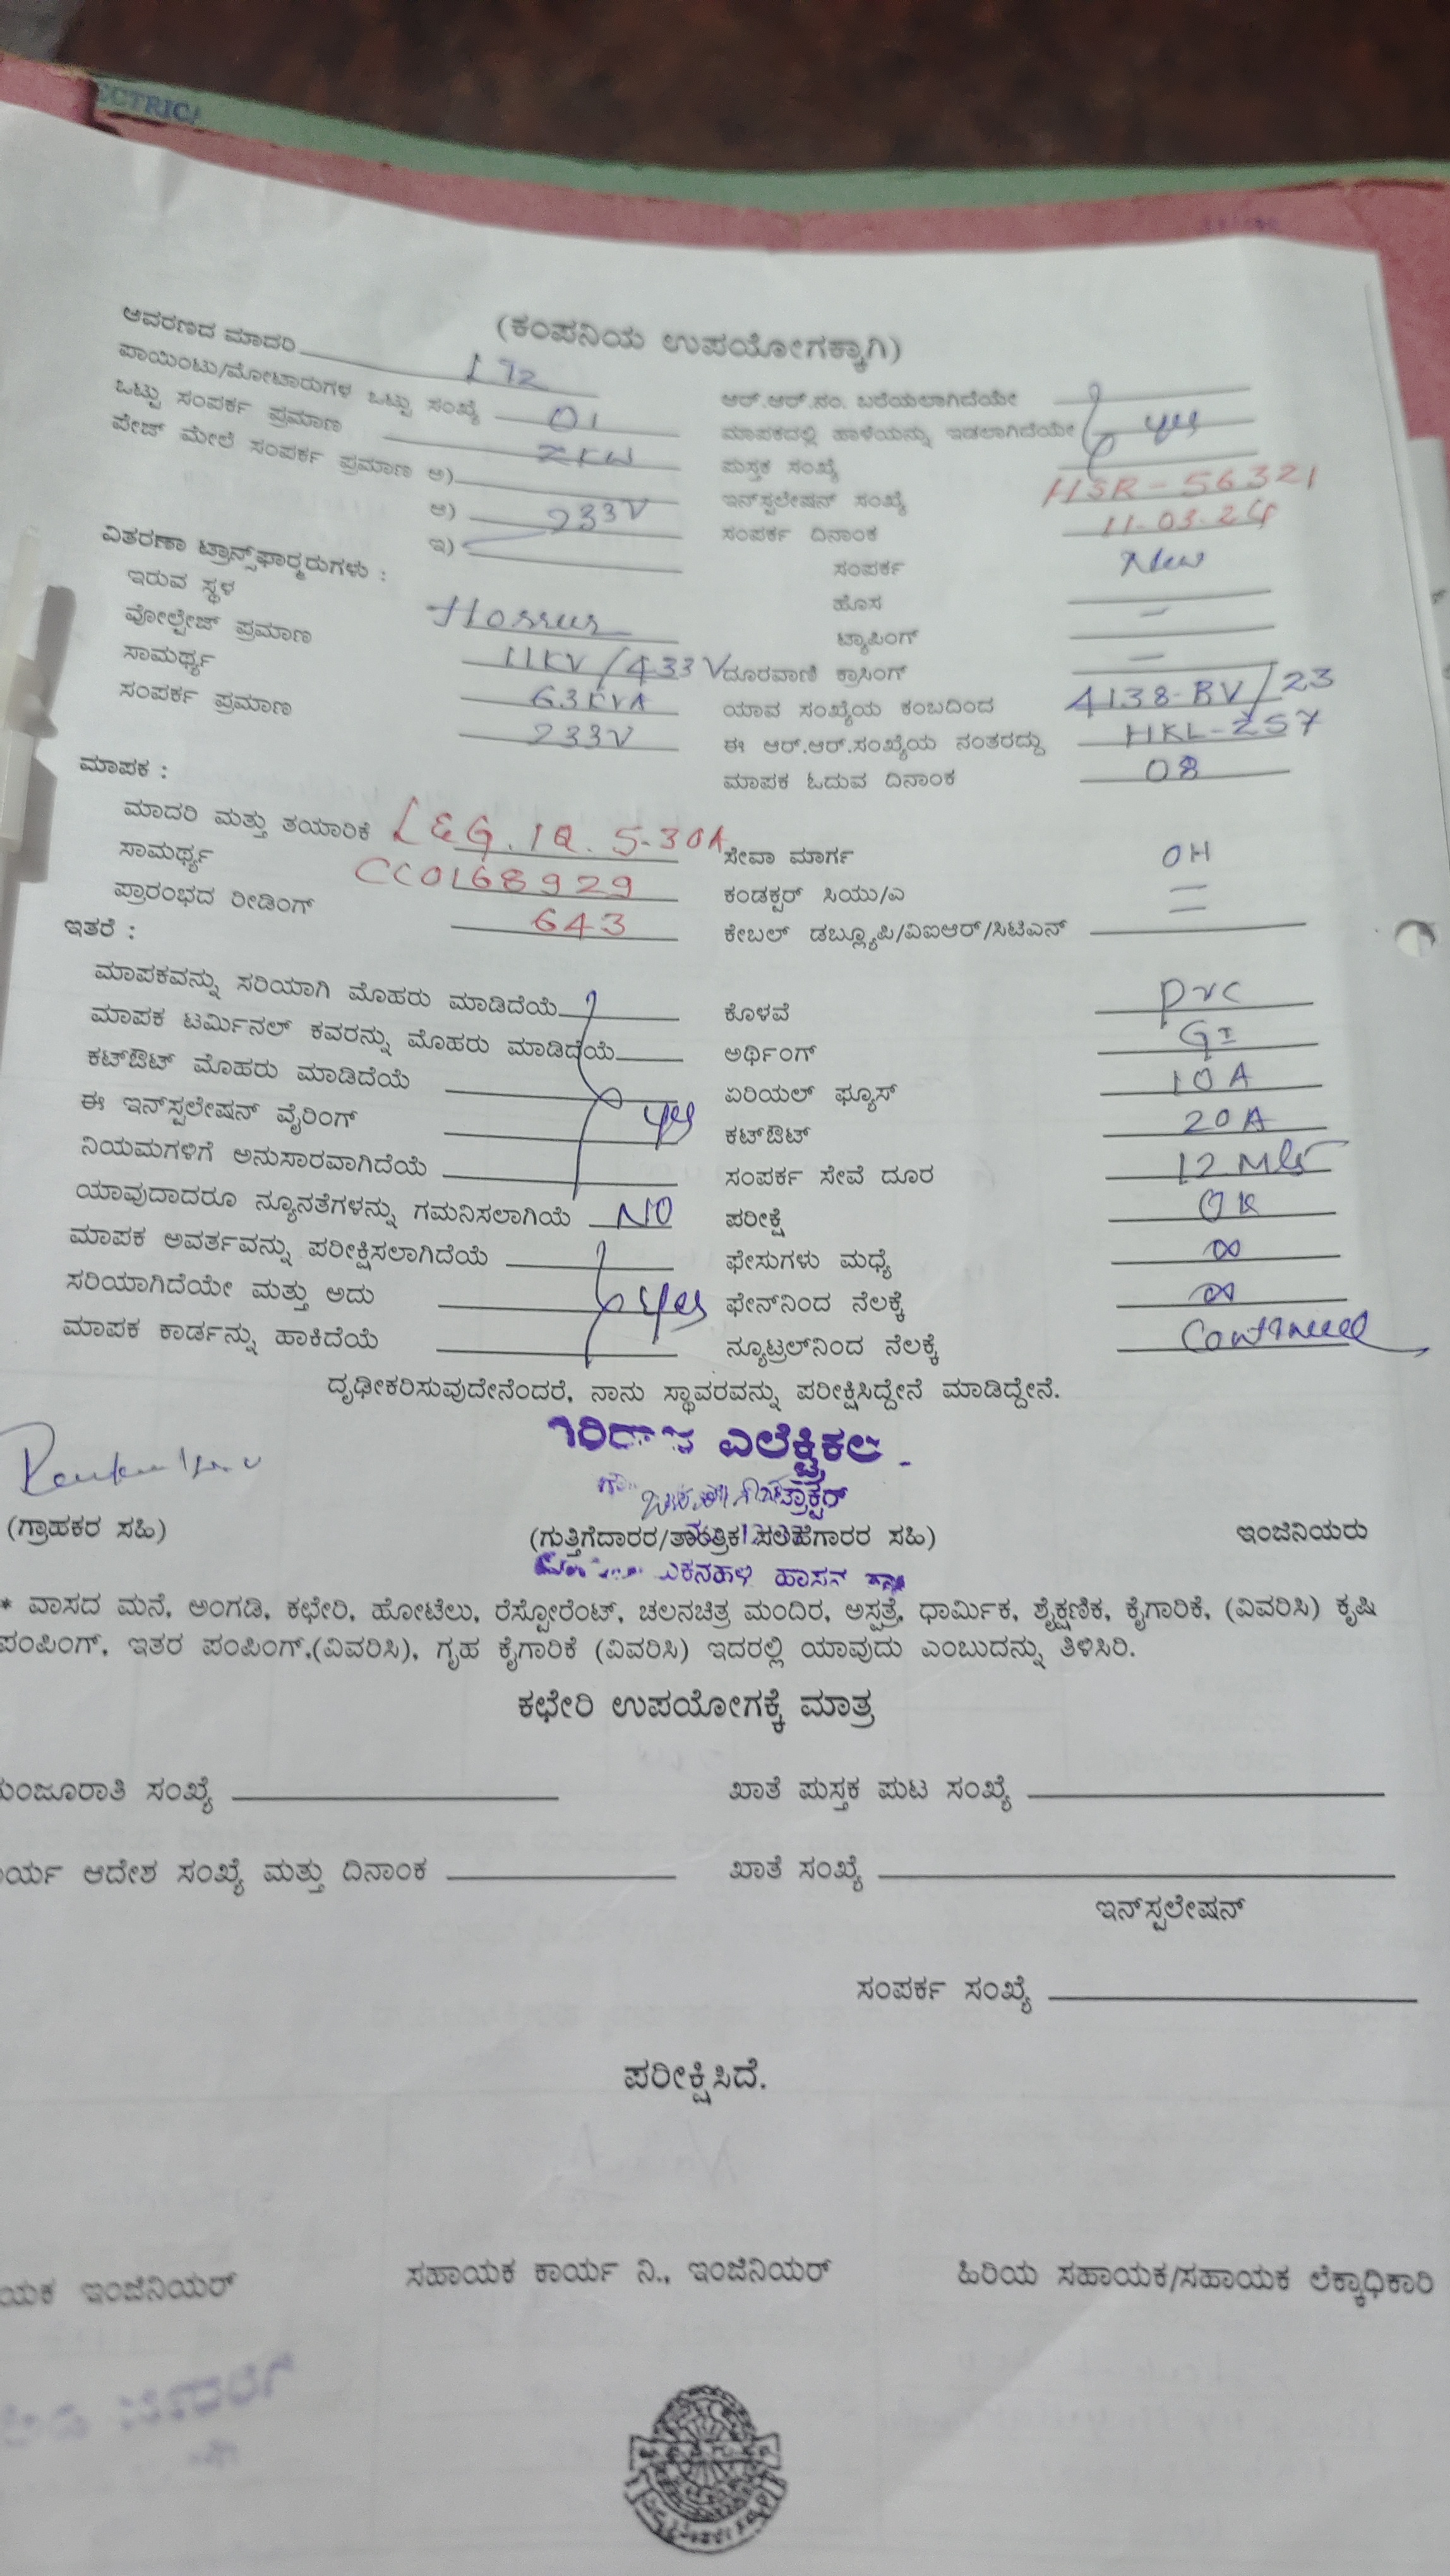 ECTRICA
(ಕಂಪನಿಯ ಉಪಯೋಗಕ್ಕಾಗಿ)
ಆವರಣದ ಮಾದರಿ
ಪಾಯಿಂಟು/ಮೋಟಾರುಗಳ ಒಟ್ಟು ಸಂಖ್ಯೆ 01
ಒಟ್ಟು ಸಂಪರ್ಕ ಪ್ರಮಾಣ 2KW
ಪೇಜ್ ಮೇಲೆ ಸಂಪರ್ಕ ಪ್ರಮಾಣ ಅ)
ಆ) 233V
ಇ)
ವಿತರಣಾ ಟ್ರಾನ್ಸ್‌ಫಾರ್‍ಮರುಗಳು :
ಇರುವ ಸ್ಥಳ
ವೋಲ್ಟೇಜ್ ಪ್ರಮಾಣ 11KV/433V
ಸಾಮರ್ಥ್ಯ 63KVA
ಸಂಪರ್ಕ ಪ್ರಮಾಣ 233V
ಮಾಪಕ :
ಮಾದರಿ ಮತ್ತು ತಯಾರಿಕೆ L&G. 1Q. 5-30A
ಸಾಮರ್ಥ್ಯ CC0168929
ಪ್ರಾರಂಭದ ರೀಡಿಂಗ್ 643
ಇತರೆ :
ಮಾಪಕವನ್ನು ಸರಿಯಾಗಿ ಮೊಹರು ಮಾಡಿದೆಯೆ
ಮಾಪಕ ಟರ್ಮಿನಲ್ ಕವರನ್ನು ಮೊಹರು ಮಾಡಿದೆಯೆ
ಕಟ್‌ಔಟ್ ಮೊಹರು ಮಾಡಿದೆಯೆ
ಈ ಇನ್‌ಸ್ಟಲೇಷನ್ ವೈರಿಂಗ್ yes
ನಿಯಮಗಳಿಗೆ ಅನುಸಾರವಾಗಿದೆಯೆ
ಯಾವುದಾದರೂ ನ್ಯೂನತೆಗಳನ್ನು ಗಮನಿಸಲಾಗಿಯೆ NO
ಮಾಪಕ ಅವರ್ತವನ್ನು ಪರೀಕ್ಷಿಸಲಾಗಿದೆಯೆ
ಸರಿಯಾಗಿದೆಯೇ ಮತ್ತು ಅದು yes
ಮಾಪಕ ಕಾರ್ಡನ್ನು ಹಾಕಿದೆಯೆ
ಆರ್.ಆರ್.ನಂ. ಬರೆಯಲಾಗಿದೆಯೇ
ಮಾಪಕದಲ್ಲಿ ಹಾಳೆಯನ್ನು ಇಡಲಾಗಿದೆಯೇ yes
ಪುಸ್ತಕ ಸಂಖ್ಯೆ
ಇನ್‌ಸ್ಟಲೇಷನ್ ಸಂಖ್ಯೆ HSR-56321
ಸಂಪರ್ಕ ದಿನಾಂಕ 11.03.24
ಸಂಪರ್ಕ New
ಹೊಸ
ಟ್ಯಾಪಿಂಗ್ –
ದೂರವಾಣಿ ಕ್ರಾಸಿಂಗ್ –
ಯಾವ ಸಂಖ್ಯೆಯ ಕಂಬದಿಂದ 4138-BV/23
ಈ ಆರ್.ಆರ್.ಸಂಖ್ಯೆಯ ನಂತರದ್ದು HKL-257
ಮಾಪಕ ಓದುವ ದಿನಾಂಕ 08
ಸೇವಾ ಮಾರ್ಗ OH
ಕಂಡಕ್ಟರ್ ಸಿಯು/ಎ
ಕೇಬಲ್ ಡಬ್ಲ್ಯೂಪಿ/ವಿಐಆರ್/ಸಿಟಿಎಸ್
ಕೊಳವೆ PVC
ಅರ್ಥಿಂಗ್ GI
ಏರಿಯಲ್ ಫ್ಯೂಸ್ 10A
ಕಟ್‌ಔಟ್ 20A
ಸಂಪರ್ಕ ಸೇವೆ ದೂರ 12 Mts
ಪರೀಕ್ಷೆ OK
ಫೇಸುಗಳು ಮಧ್ಯೆ ∞
ಫೇಸ್‌ನಿಂದ ನೆಲಕ್ಕೆ ∞
ನ್ಯೂಟ್ರಲ್‌ನಿಂದ ನೆಲಕ್ಕೆ Continued
ದೃಢೀಕರಿಸುವುದೇನೆಂದರೆ, ನಾನು ಸ್ಥಾವರವನ್ನು ಪರೀಕ್ಷಿಸಿದ್ದೇನೆ ಮಾಡಿದ್ದೇನೆ.
ಎಲೆಕ್ಟ್ರಿಕಲ್
(ಗ್ರಾಹಕರ ಸಹಿ) (ಗುತ್ತಿಗೆದಾರರ/ತಾಂತ್ರಿಕ ಸಲಹೆಗಾರರ ಸಹಿ) ಇಂಜಿನಿಯರು
ಹಾಸನ
* ವಾಸದ ಮನೆ, ಅಂಗಡಿ, ಕಛೇರಿ, ಹೋಟೆಲು, ರೆಸ್ಟೋರೆಂಟ್, ಚಲನಚಿತ್ರ ಮಂದಿರ, ಅಸ್ಪತ್ರೆ, ಧಾರ್ಮಿಕ, ಶೈಕ್ಷಣಿಕ, ಕೈಗಾರಿಕೆ, (ವಿವರಿಸಿ) ಕೃಷಿ
ಪಂಪಿಂಗ್, ಇತರ ಪಂಪಿಂಗ್,(ವಿವರಿಸಿ), ಗೃಹ ಕೈಗಾರಿಕೆ (ವಿವರಿಸಿ) ಇದರಲ್ಲಿ ಯಾವುದು ಎಂಬುದನ್ನು ತಿಳಿಸಿರಿ.
ಕಛೇರಿ ಉಪಯೋಗಕ್ಕೆ ಮಾತ್ರ
ಮಂಜೂರಾತಿ ಸಂಖ್ಯೆ ಖಾತೆ ಪುಸ್ತಕ ಪುಟ ಸಂಖ್ಯೆ
ರ್ಯ ಆದೇಶ ಸಂಖ್ಯೆ ಮತ್ತು ದಿನಾಂಕ ಖಾತೆ ಸಂಖ್ಯೆ
ಇನ್‌ಸ್ಟಲೇಷನ್
ಸಂಪರ್ಕ ಸಂಖ್ಯೆ
ಪರೀಕ್ಷಿಸಿದೆ.
ಯಕ ಇಂಜಿನಿಯರ್ ಸಹಾಯಕ ಕಾರ್ಯ ನಿ., ಇಂಜಿನಿಯರ್ ಹಿರಿಯ ಸಹಾಯಕ/ಸಹಾಯಕ ಲೆಕ್ಕಾಧಿಕಾರಿ